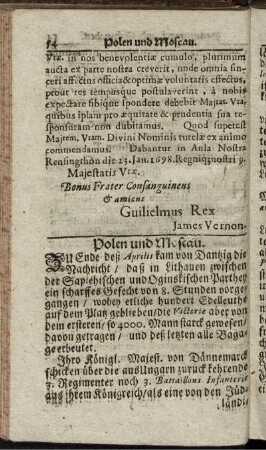 54 Polen und Moscau.
Vræ. in nos benevolentiæ cumulo, plurimum
aucta ex parte nostra creverit, unde omnia sin-
ceri affectus officia & optimæ voluntatis effectus,
prout res tempusque postulaverint, à nobis
expectare sibique spondere debebit Majtas. Vra,
quibus ipsam pro æquitate & prudentia sua re-
sponsuram non dubitamus. Quod superest
Majtem. Vram. Divini Nominis tutelæ ex animo
commendamus. Dabantur in Aula Nostra
Rensingthön die 25. Jan. 1698. Regniq; nostri 9.
Majestatis Vræ.
Bonus Frater Consanguineus
& amicus
Guilielmus Rex
James Vernon.
Polen und Moscau.
Zu Ende deß Aprilis kam von Dantzig die
Nachricht / daß in Lithauen zwischen
der Sapiehischen und Oginskischen Parthey
ein scharffes Gefecht von 8. Stunden vorge-
gangen / wobey etliche hundert Edelleuthe
auf dem Platz geblieben / die Victorie aber von
dem ersteren / so 4000. Mann starck gewesen /
davon getragen / und deß letzten alle Baga-
ge erbeutet.
Ihro Königl. Majest. von Dännemarck
schicken über die aus Ungarn zuruck kehrende
3. Regimenter noch 3. Battaillons Infanterie
aus ihrem Königreich / als eine von den Jüd-
ländi-